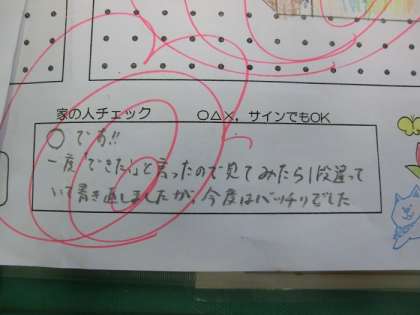 家の人チェック　○△×、サインでもOK
○です!!
一度「できた!」と言ったので見てみたら1段違って
いて書き直しましたが、今度はバッチリでした